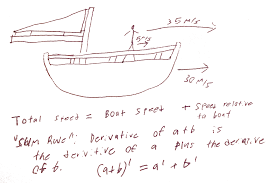 35 m/s
5 m/s
30 m/s
Total speed = Boat speed + speed relative
to boat
"SUM RULE": Derivative of a+b is
the derivative of a plus the derivative
of b. (a+b)' = a' + b'